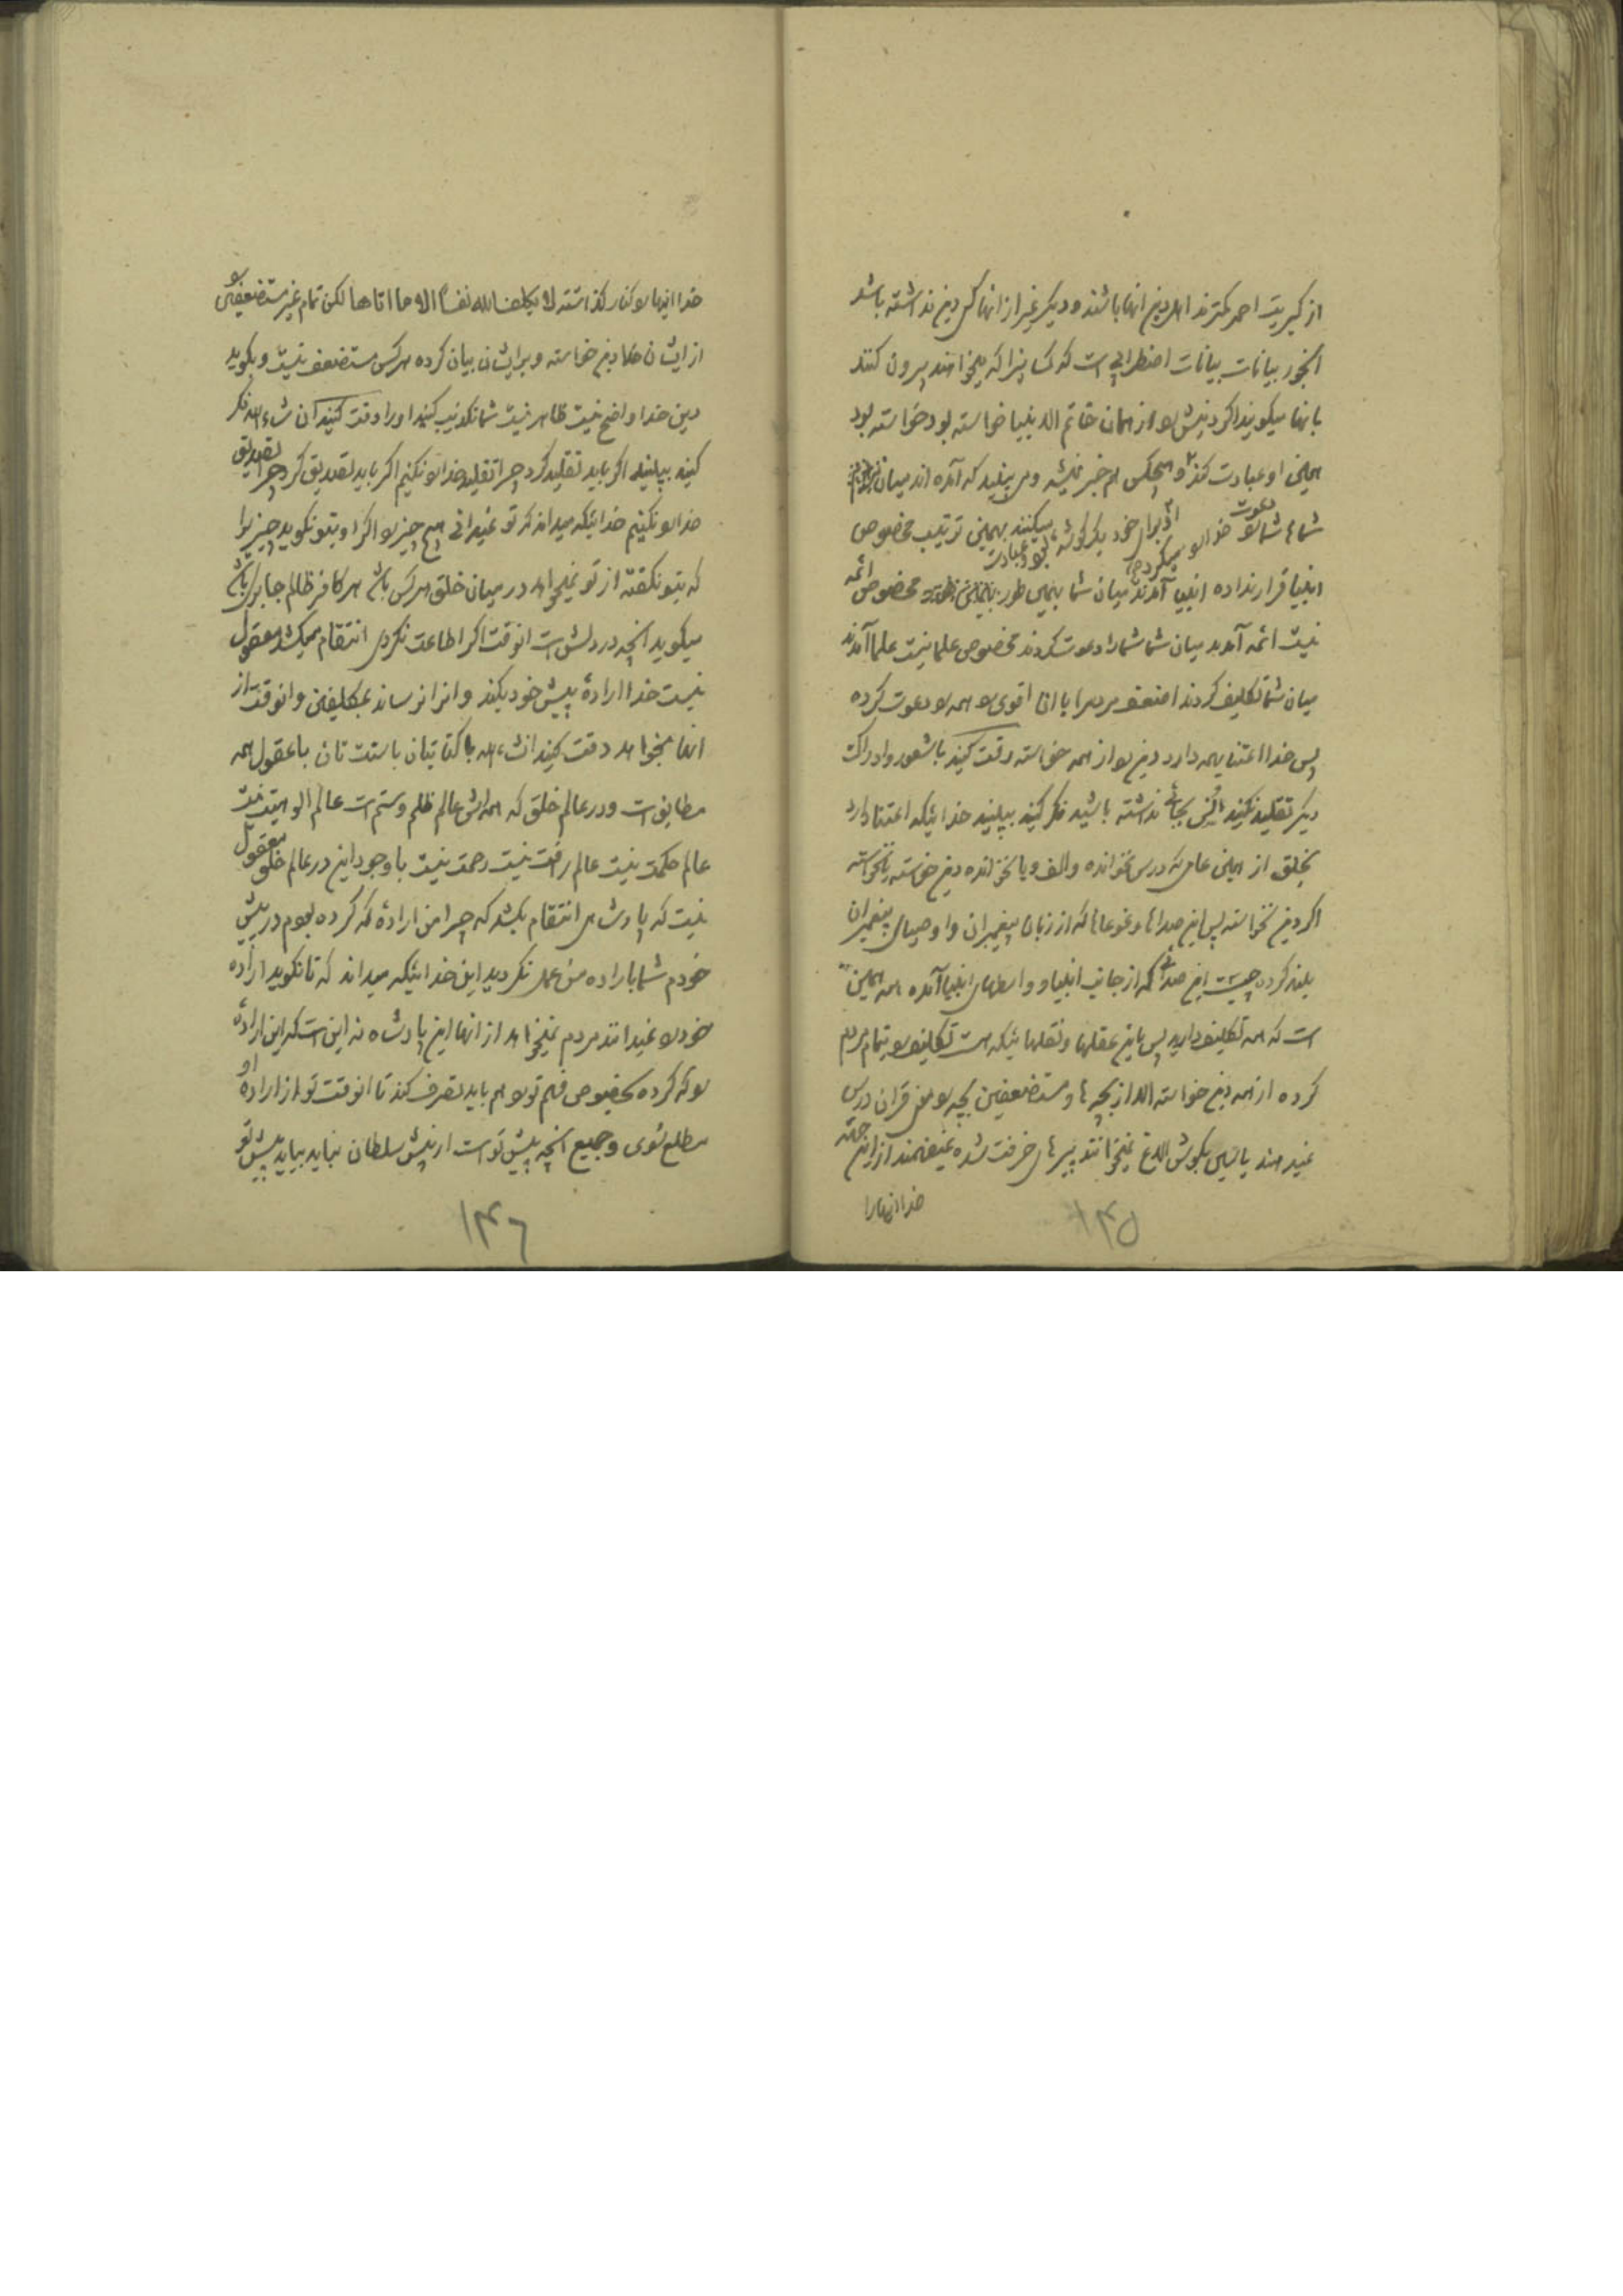 از کبریت احمر کمترند اهل دین انها باشند و دیگر غیر از انها کس دین نداشته باشد
اینجور بیانات بیانات اضطرابی است که کسانیرا که میخواهند بیرون کنند
بانها میکویند اکر دینش را از همان خاتم الانبیا خواسته بود خواسته بود
همین او عبادت کند و هیچکس هم خبر نشود و می بینید که آمده اند میان
شماها شما را دعوت میکنند بهمین ترتیب مخصوص
انبیا قرار نداده انبیا آمدند میان شما بهمین طور مخصوص ائمه
نیست ائمه آمدند میان شما شما را دعوت کردند مخصوص علما نیست علما آمدند
میان شما تکلیف کردند اضعف مردم را با اقوی را همه را دعوت کرده
پس خدا اعتنا بهمه دارد دین را از همه خواسته دقت کنید باشعور و ادراک
دیگر تقلید نکنید انس بجائی نداشته باشید فکر کنید ببینید خدائیکه اعتنا دارد
بخلق از همین عامی که درس نخوانده و الف و با نخوانده دین خواسته یا نخواسته
اکر دین نخواسته پس این صداها و غوغاها که از زبان پیغمبران و اوصیای پیغمبران
بلند کرده چیست این صدائی که از جانب انبیا و واسطهای انبیا آمده همه همین
است که همه تکلیف دارید پس باین عقلها و نقلهائیکه هست تکلیف را بتمام مردم
کرده از همه دین خواسته الا از بچه ها و مستضعفین بچه را قران درس
میدهند یا یاسین بکوش الاغ میخوانند پیرهای خرفت شده نمیفهمند از این جهته
خدا انهارا
۱۳۵
خدا اینها را کنار گذاشته لا یکلف الله نفسا الا ما اتاها لکن تمام غیر مستضعفین را
از ایشان خدا دین خواسته و برایشان بیان کرده هرکس مستضعف نیست و بکوید
دین خدا واضح نیست ظاهر نیست شما تکذیب کنید اورا دقت کنید ان شاء الله فکر
کنید ببینید اکر باید تقلید کرد چرا تقلید خدا را نکنیم اکر باید تصدیق کرد چرا تصدیق
خدا را نکنیم خدائیکه میداند که تو نمیدانی هیچ چیز را اکر او بتو نکوید چیزیرا
که بتو نکفته از تو نمیخواهد در میان خلق هرکس باشد هر کافر ظالم جابری باشد
میکوید انچه در دلش است انوقت اکر اطاعت نکردی انتقام میکشد معقول
نیست خدا ارادهٔ پیش خود بکند و انرا نرساند بمکلفین و انوقت از
انها بخواهد دقت کنید انشاء الله با کتابتان با سنت تان با عقول همه
مطابق است و در عالم خلق که همه اش عالم ظلم و ستم است عالم الوهیت نیست
عالم حکمت نیست عالم رافت نیست رحمت نیست با وجود این در عالم خلق معقول
نیست که پادشاهی انتقام بکشد که چرا من ارادهٔ که کرده بودم در پیش
خودم شما باراده من عمل نکردید این خدائیکه میداند که تا نکوید اراده
خود را نمیدانند مردم نمیخواهد از انها این پادشاه نه این است که این ارادهٔ
را که کرده بخصوص فهم تو را هم باید تصرف کند تا انوقت تو از ارادهٔ او
مطلع شوی و جمیع انچه پیش تو است از پیش سلطان نباید بیاید پیش تو
۱۳۶